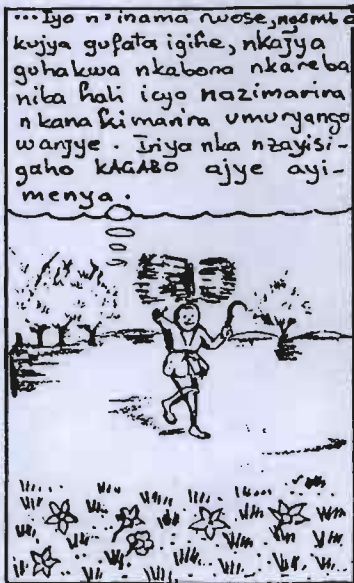 ...Iyo n'inama rwose, ngomba
kujya gufata igihe, nkajya
guhakwa nkabona nkareba
niba hali icyo nazimarira
nkanakimarira umuryango
wanjye. Iriya nka nzayisi-
gaho KAGABO ajye ayi-
menya.